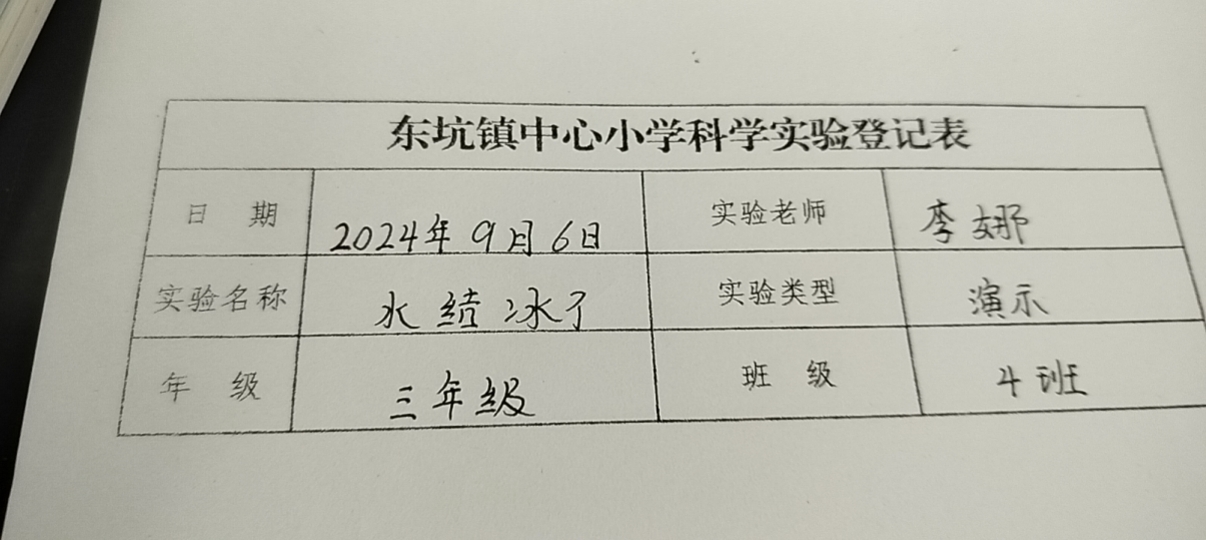 东坑镇中心小学科学实验登记表
日 期 2024年9月6日 实验老师 李娜
实验名称 水结冰了 实验类型 演示
年 级 三年级 班 级 4班